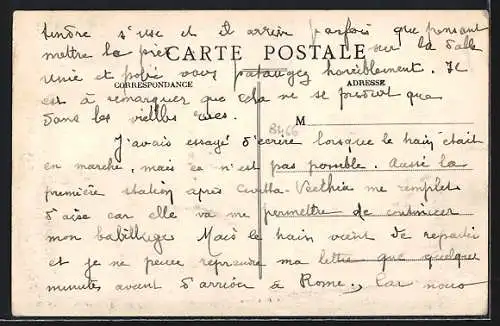 tendre s'use et il arrive parfois que pensant
mettre le pied sur la dalle
CARTE POSTALE
unie et polie vous pataugez horriblement. Il
CORRESPONDANCE
ADRESSE
est à remarquer que cela ne se produit que
dans les vieilles rues.
8466
M
J'avais essayé d'écrire lorsque le train était
en marche, mais ça n'est pas possible. Aussi la
première station après Civitta-Vecchia me remplit
d'aise car elle va me permettre de continuer
mon babillage. Mais le train vient de repartir
et je ne peux reprendre ma lettre que quelques
minutes avant d'arriver à Rome., Car nous